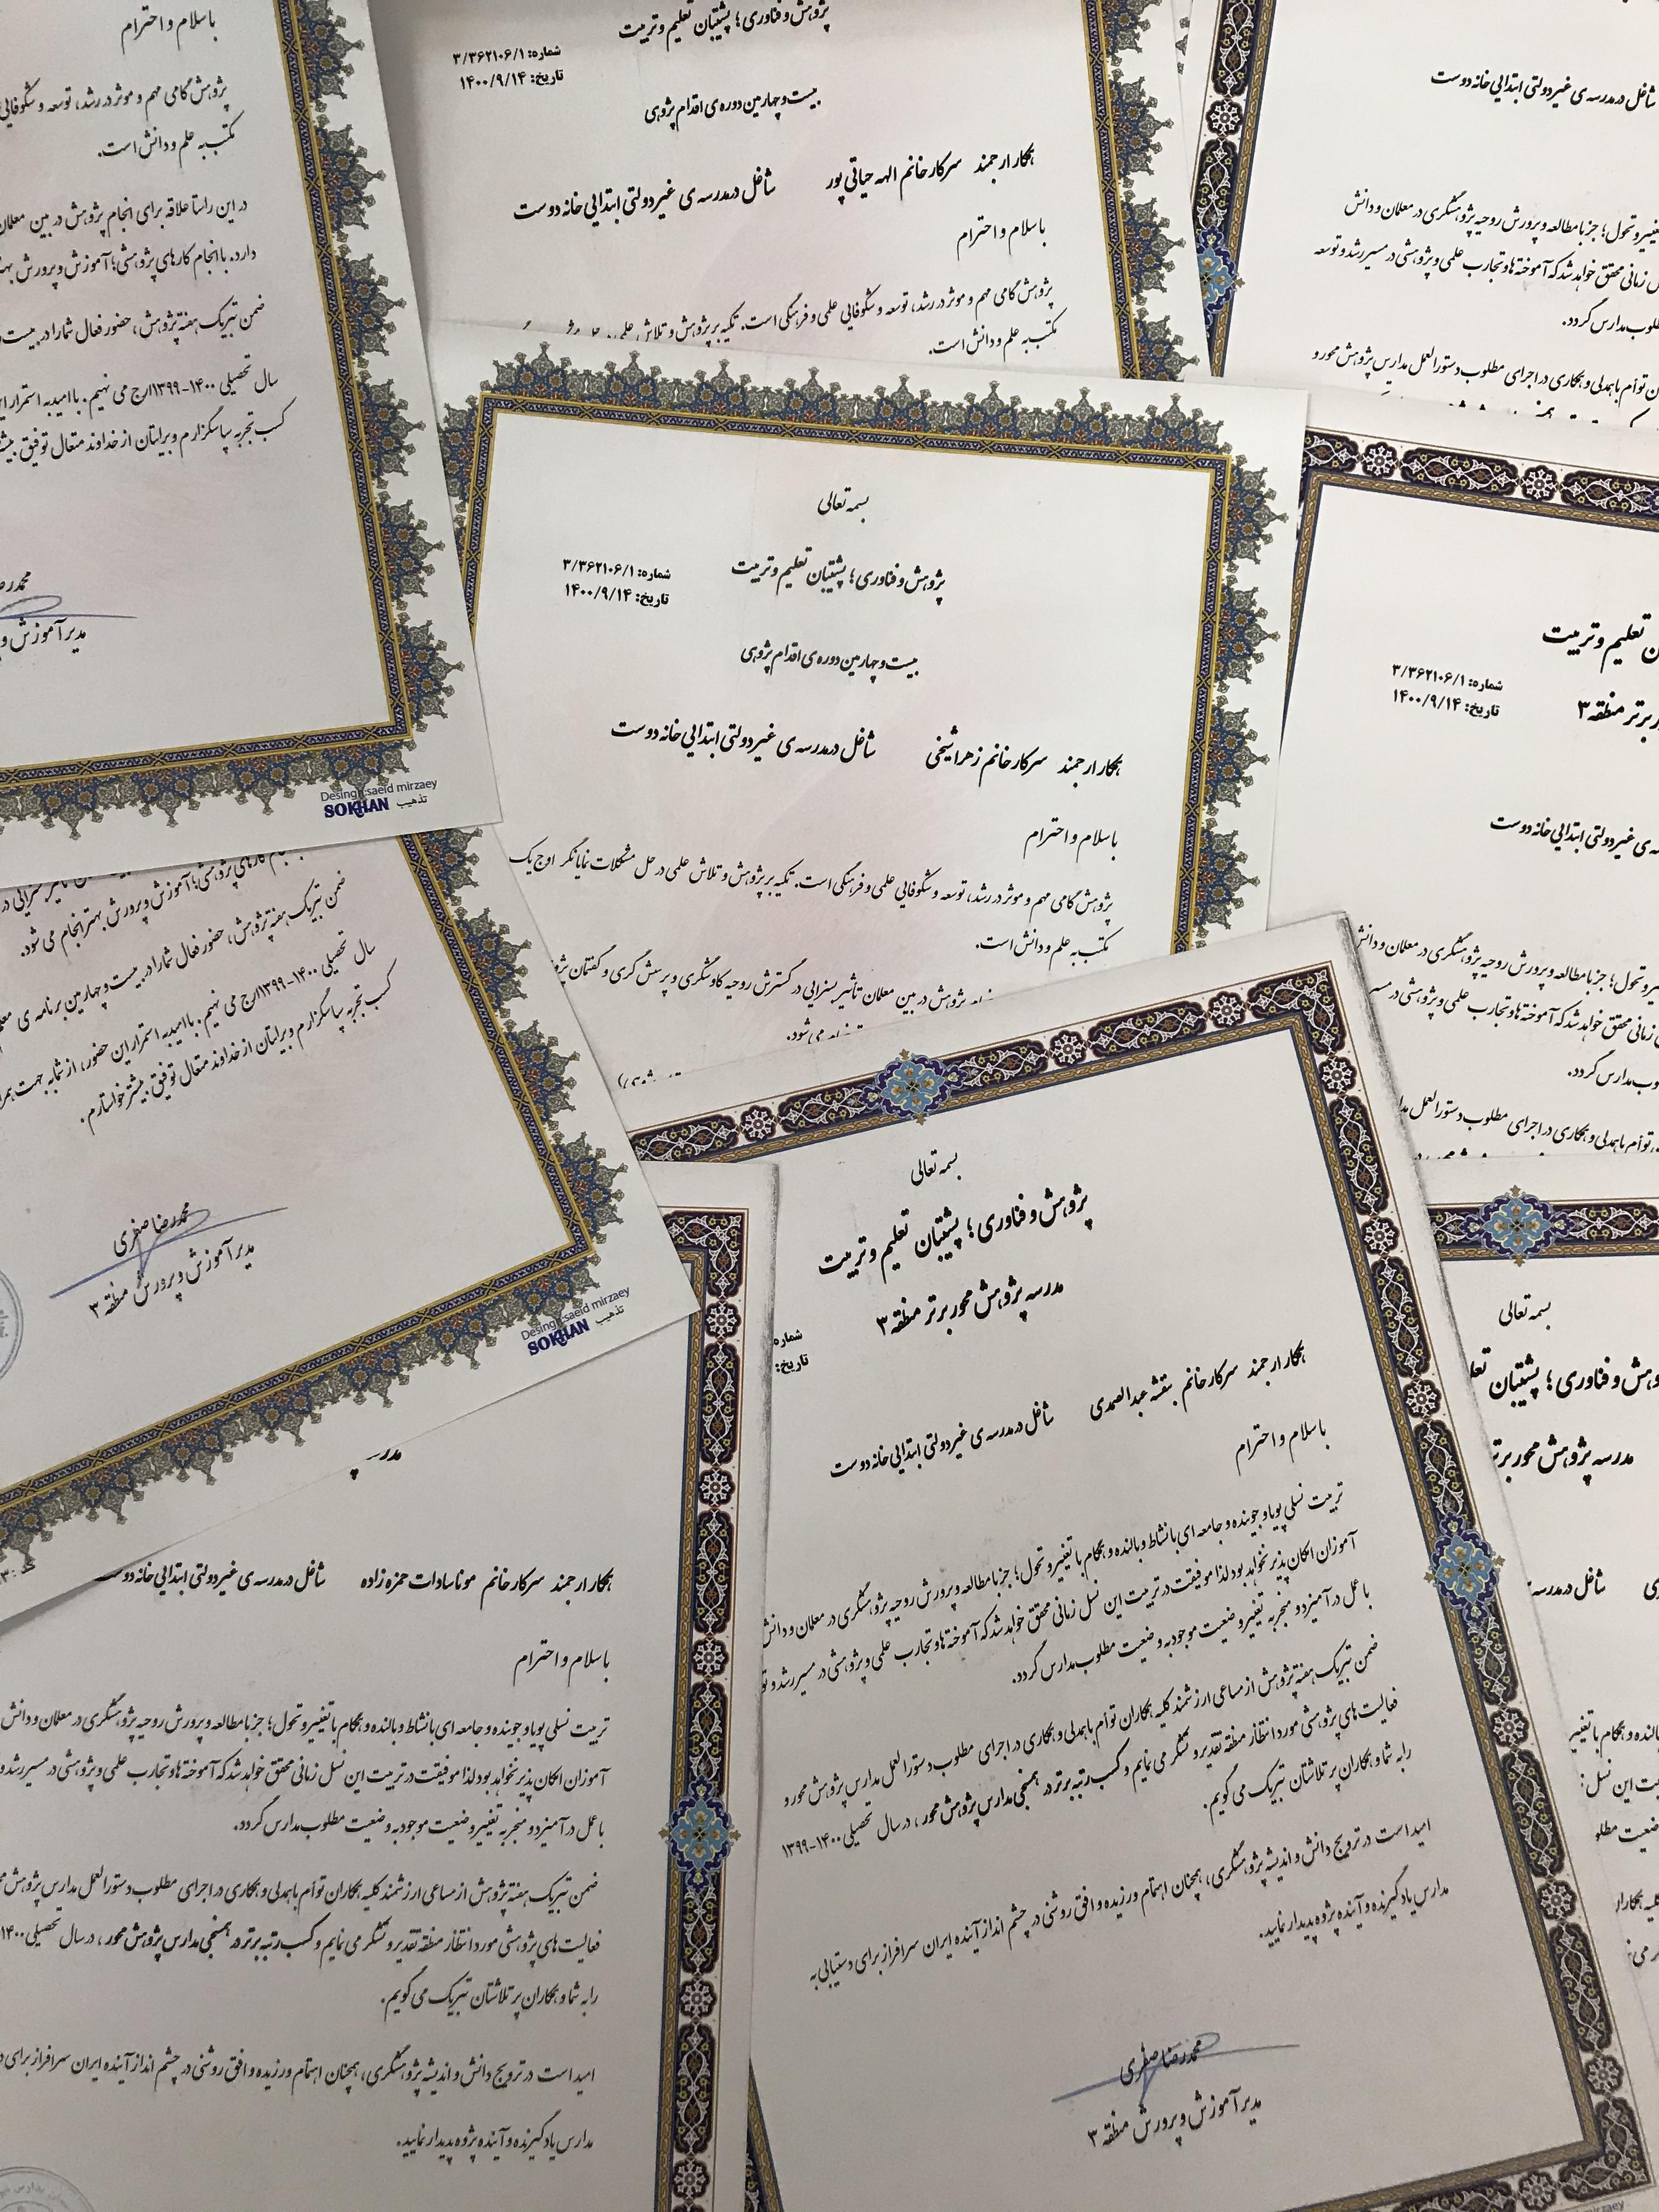 باسلام و احترام
پژوهش گامی مهم و موثر در رشد، توسعه و شکوفایی
مکتب به علم و دانش است.
در این راستا علاقه برای انجام پژوهش در بین معلمان
دارد. با انجام کارهای پژوهشی؛ آموزش و پرورش
ضمن تبریک هفته پژوهش، حضور فعال شما را در بیست و
سال تحصیلی ۱۴۰۰-۱۳۹۹ ارج می نهیم. با امید به استمرار
کسب تجربه سپاسگزارم و برایتان از خداوند متعال توفیق
مدیر آموزش و
Desing:saeid mirzaey
SOKHAN تذهیب
پژوهش و فناوری؛ پشتیبان تعلیم و تربیت
شماره: ۳/۳۶۲۱۰۶/۱
تاریخ: ۱۴۰۰/۹/۱۴
بیست و چهارمین دوره ی اقدام پژوهی
همکار ارجمند سرکار خانم الهه حیاتی پور شاغل در مدرسه ی غیر دولتی ابتدایی خانه دوست
باسلام و احترام
پژوهش گامی مهم و موثر در رشد، توسعه و شکوفایی علمی و فرهنگی است. تکیه بر پژوهش و تلاش علمی
مکتب به علم و دانش است.
شاغل در مدرسه ی غیر دولتی ابتدایی خانه دوست
تغییر و تحول؛ جز با مطالعه و پرورش روحیه پژوهشگری در معلمان و دانش
زمانی محقق خواهد شد که آموخته ها و تجارب علمی و پژوهشی در مسیر رشد و توسعه
مدارس گردد.
توأم با همدلی و همکاری در اجرای مطلوب دستورالعمل مدارس پژوهش محور و
بسمه تعالی
پژوهش و فناوری؛ پشتیبان تعلیم و تربیت
شماره: ۳/۳۶۲۱۰۶/۱
تاریخ: ۱۴۰۰/۹/۱۴
بیست و چهارمین دوره ی اقدام پژوهی
همکار ارجمند سرکار خانم زهرا شیخی شاغل در مدرسه ی غیر دولتی ابتدایی خانه دوست
باسلام و احترام
پژوهش گامی مهم و موثر در رشد، توسعه و شکوفایی علمی و فرهنگی است. تکیه بر پژوهش و تلاش علمی در حل مشکلات نمایانگر اوج یک
مکتب به علم و دانش است.
پژوهش در بین معلمان تأثیر بسزایی در گسترش روحیه کاوشگری و پرسش گری و گفتمان
می شود.
تعلیم و تربیت
برتر منطقه ۳
شماره: ۳/۳۶۲۱۰۶/۱
تاریخ: ۱۴۰۰/۹/۱۴
ی غیر دولتی ابتدایی خانه دوست
و تحول؛ جز با مطالعه و پرورش روحیه پژوهشگری در معلمان و دانش
زمانی محقق خواهد شد که آموخته ها و تجارب علمی و پژوهشی در
مدارس گردد.
توأم با همدلی و همکاری در اجرای مطلوب دستورالعمل
کارهای پژوهشی؛ آموزش و پرورش بهتر انجام می شود.
ضمن تبریک هفته پژوهش، حضور فعال شما را در بیست و چهارمین برنامه ی
سال تحصیلی ۱۴۰۰-۱۳۹۹ ارج می نهیم. با امید به استمرار این حضور، از شما به جهت
کسب تجربه سپاسگزارم و برایتان از خداوند متعال توفیق بیشتر خواستارم.
محمدرضا صفری
مدیر آموزش و پرورش منطقه ۳
Desing:saeid mirzaey
SOKHAN تذهیب
همکار ارجمند سرکار خانم مونا سادات حمزه زاده شاغل در مدرسه ی غیر دولتی ابتدایی خانه
باسلام و احترام
تربیت نسلی پویا و جوینده و جامعه ای بانشاط و بالنده و همگام با تغییر و تحول؛ جز با مطالعه و پرورش روحیه پژوهشگری در معلمان و دانش
آموزان امکان پذیر نخواهد بود لذا موفقیت در تربیت این نسل زمانی محقق خواهد شد که آموخته ها و تجارب علمی و پژوهشی در مسیر رشد و
با عمل در آمیزد و منجر به تغییر وضعیت موجود به وضعیت مطلوب مدارس گردد.
ضمن تبریک هفته پژوهش از مساعی ارزشمند کلیه همکاران توأم با همدلی و همکاری در اجرای مطلوب دستورالعمل مدارس پژوهش
فعالیت های پژوهشی مورد انتظار منطقه تقدیر و تشکر می نمایم و کسب رتبه برتر در همسنجی مدارس پژوهش محور، در سال تحصیلی ۱۴۰۰
را به شما و همکاران پرتلاشتان تبریک می گویم.
امید است در ترویج دانش و اندیشه پژوهشگری، همچنان اهتمام ورزیده و افق روشنی در چشم انداز آینده ایران سرافراز برای
مدارس یادگیرنده و آینده پژوه پدیدار نمایید.
بسمه تعالی
پژوهش و فناوری؛ پشتیبان تعلیم و تربیت
مدرسه پژوهش محور برتر منطقه ۳
شماره
تاریخ:
همکار ارجمند سرکار خانم بنفشه عبدالصمدی شاغل در مدرسه ی غیر دولتی ابتدایی خانه دوست
باسلام و احترام
تربیت نسلی پویا و جوینده و جامعه ای بانشاط و بالنده و همگام با تغییر و تحول؛ جز با مطالعه و پرورش روحیه پژوهشگری در معلمان و دانش
آموزان امکان پذیر نخواهد بود لذا موفقیت در تربیت این نسل زمانی محقق خواهد شد که آموخته ها و تجارب علمی و پژوهشی در مسیر رشد و
با عمل در آمیزد و منجر به تغییر وضعیت موجود به وضعیت مطلوب مدارس گردد.
ضمن تبریک هفته پژوهش از مساعی ارزشمند کلیه همکاران توأم با همدلی و همکاری در اجرای مطلوب دستورالعمل مدارس پژوهش محور و
فعالیت های پژوهشی مورد انتظار منطقه تقدیر و تشکر می نمایم و کسب رتبه برتر در همسنجی مدارس پژوهش محور، در سال تحصیلی ۱۴۰۰-۱۳۹۹
را به شما و همکاران پرتلاشتان تبریک می گویم.
امید است در ترویج دانش و اندیشه پژوهشگری، همچنان اهتمام ورزیده و افق روشنی در چشم انداز آینده ایران سرافراز برای دستیابی به
مدارس یادگیرنده و آینده پژوه پدیدار نمایید.
محمدرضا صفری
مدیر آموزش و پرورش منطقه ۳
بسمه تعالی
و فناوری؛ پشتیبان
مدرسه پژوهش محور برتر
شاغل در مدرسه
بالنده و همگام با تغییر
این نسل